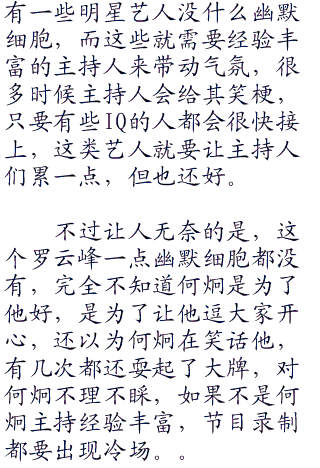 有一些明星艺人没什么幽默
细胞，而这些就需要经验丰
富的主持人来带动气氛，很
多时候主持人会给其笑梗，
只要有些IQ的人都会很快接
上，这类艺人就要让主持人
们累一点，但也还好。
不过让人无奈的是，这
个罗云峰一点幽默细胞都没
有，完全不知道何炯是为了
他好，是为了让他逗大家开
心，还以为何炯在笑话他，
有几次都还耍起了大牌，对
何炯不理不睬，如果不是何
炯主持经验丰富，节目录制
都要出现冷场。。